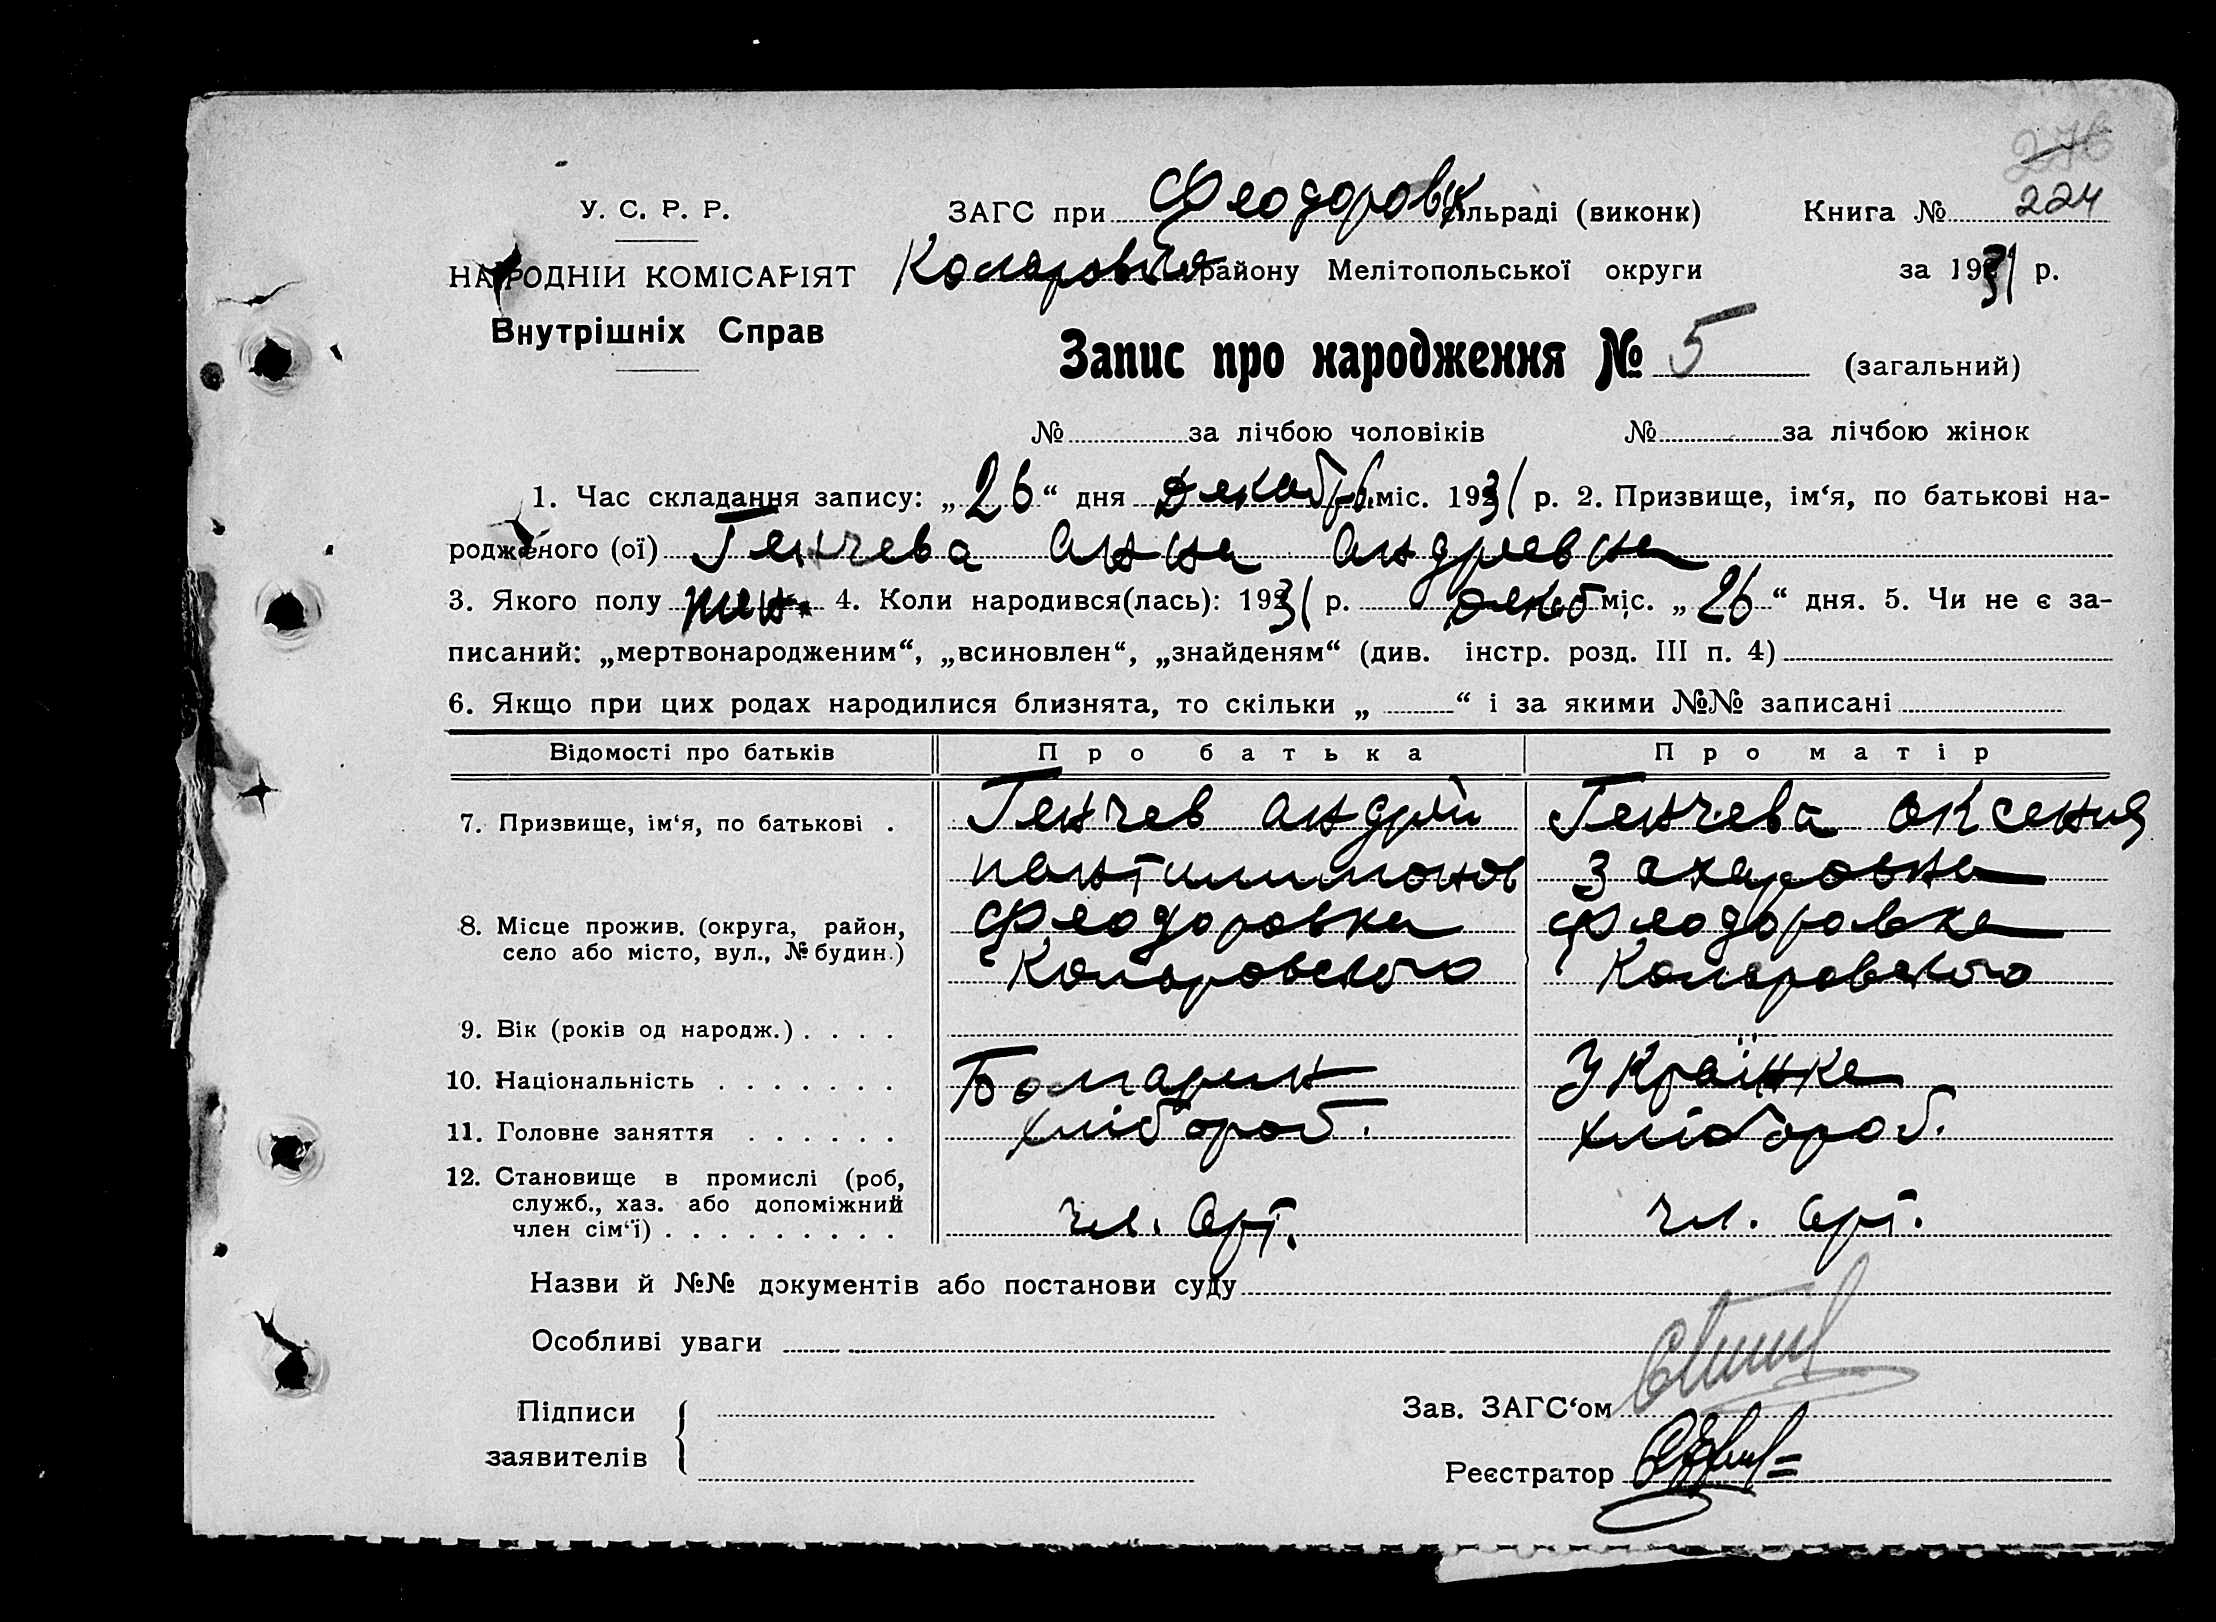 276
У. С. Р. Р.
ЗАГС при Феодоровк сільраді (виконк)
Книга № 224
НАРОДНІЙ КОМІСАРІЯТ
Коларовськ району Мелітопольської округи
за 1931 р.
Внутрішніх Справ
Запис про народження № 5 (загальний)
№ за лічбою чоловіків № за лічбою жінок
1. Час складання запису: „26“ дня декабр міс. 1931 р. 2. Призвище, ім‘я, по батькові на-
родженого (ої) Генчева Анна Андреевна
3. Якого полу жен. 4. Коли народився(лась): 1931 р. декаб міс. „26“ дня. 5. Чи не є за-
писаний: „мертвонародженим“, „всиновлен“, „знайденям“ (див. інстр. розд. III п. 4)
6. Якщо при цих родах народилися близнята, то скільки „ “ і за якими №№ записані
Відомості про батьків Про батька Про матір
7. Призвище, ім‘я, по батькові . Генчев Андрей Генчева Аксения
Пантилимонов Захаровна
8. Місце прожив. (округа, район, Феодоровка Феодоровка
село або місто, вул., № будин.) Коларовского Коларовского
9. Вік (років од народж.) . . . .
10. Національність . . . . . . . Болгарин Українка
11. Головне заняття . . . . . . хлібороб. хлібороб.
12. Становище в промислі (роб,
служб., хаз. або допоміжний
член сім‘ї) . . . . . . . . . чл. арт. чл. арт.
Назви й №№ документів або постанови суду
Особливі уваги
Підписи
заявителів
Зав. ЗАГС‘ом
Реєстратор